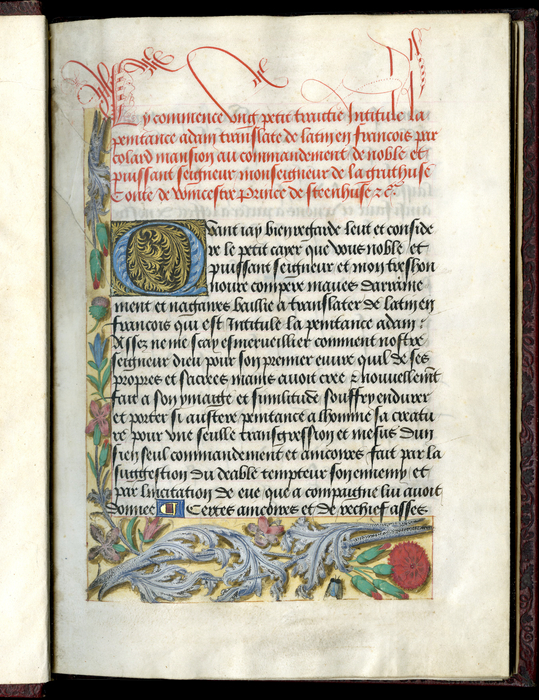 Cy commence vng petit traittie Intitule la
penitance adam translate de latin en francois par
colard mansion au commandement de noble et
puissant seigneur monseigneur de la gruthuse
Conte de wincestre Prince de steenhuse &c.
Quant iay bien regarde leut et conside
re le petit cayer que vous noble et
puissant seigneur et mon treshon
noure compere maues darraine
ment et nagaires baillie a translater de latin en
francois qui est Intitule la penitance adam:
Assez ne me scay esmerueillier comment nostre
seigneur dieu pour son premier euure quil de ses
propres et sacrees mains auoit cree & nouuellemt
fait a son ymaige et similitude souffry endurer
et porter si austere penitance a lhomme sa creatu
re pour vne seulle transgression et mesus dun
sien seul commandement et ancores fait par la
suggestion du deable tempteur son ennemy et
par lincitation de eue que a compaigne luy auoit
donnee Certes ancores et de rechief asses